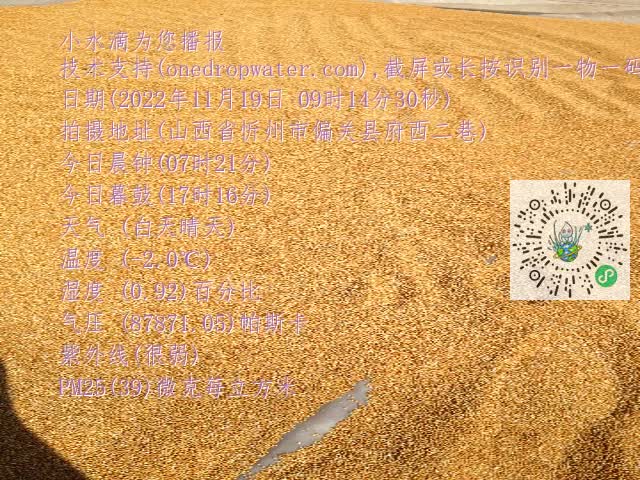 小水滴为您播报
技术支持(onedropwater.com),截屏或长按识别一物一码
日期(2022年11月19日 09时14分30秒)
拍摄地址(山西省忻州市偏关县府西二巷)
今日晨钟(07时21分)
今日暮鼓(17时16分)
天气 (白天晴天)
温度 (-2.0℃)
湿度 (0.92)百分比
气压 (87871.05)帕斯卡
紫外线(很弱)
PM25(39)微克每立方米